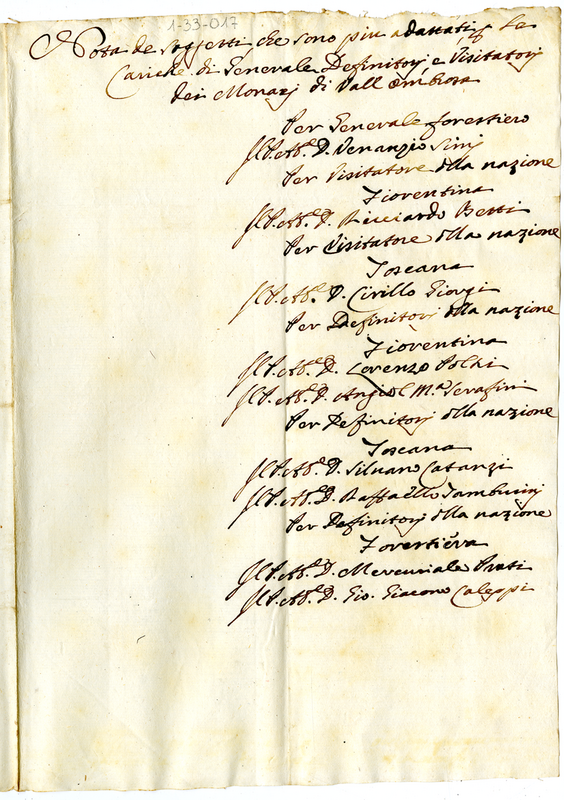 1-33-017
Nota de Soggetti che sono piu adattati p Le
Cariche di Generale Definitorj e Visitatorj
dei Monarj di Vall'ombrosa
Per Generale forestiero
Il P. Ab.e D. Venanzio
Per Visitatore della nazione
Fiorentina
Il P. Ab.e D. Ricciardo Berti
Per Visitatore della nazione
Toscana
Il P. Ab.e D. Cirillo Giorgi
Per Definitorj della nazione
Fiorentina
Il P. Ab.e D. Lorenzo Polhi
Il P. Ab.e D. Angiol M.a Serafini
Per Definitorj della nazione
Toscana
Il P. Ab.e D. Silvano Catanzi
Il P. Ab.e D. Raffaello Tamburinj
Per Definitorj della nazione
Forestiera
Il P. Ab.e D. Mercuriale Prati
Il P. Ab.e D. Gio. Giacomo Caleppi